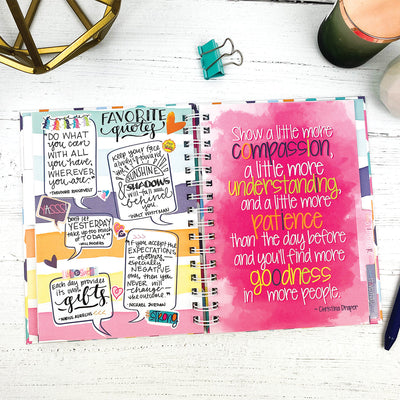 FAVORITE
quotes
DO WHAT
YOU CAN
WITH ALL
YOU HAVE,
WHEREVER
YOU ARE.
-THEODORE ROOSEVELT
Keep your face
always toward
the
SUNSHINE
&
SHADOWS
will fall
behind
you.
-WALT WHITMAN
YASSS
DON'T LET
YESTERDAY
TAKE UP TOO MUCH
OF TODAY
-WILL ROGERS
IF YOU ACCEPT THE
EXPECTATIONS
of others,
especially
NEGATIVE
ones, then you
NEVER will
change
the outcome.
-MICHAEL JORDAN
Each day provides
its own
gifts
-MARCUS AURELIUS
STRONG
Show a little more
compassion,
a little more
understanding,
and a little more
patience
than the day before
and you'll find more
goodness
in more people.
- Christina Draper